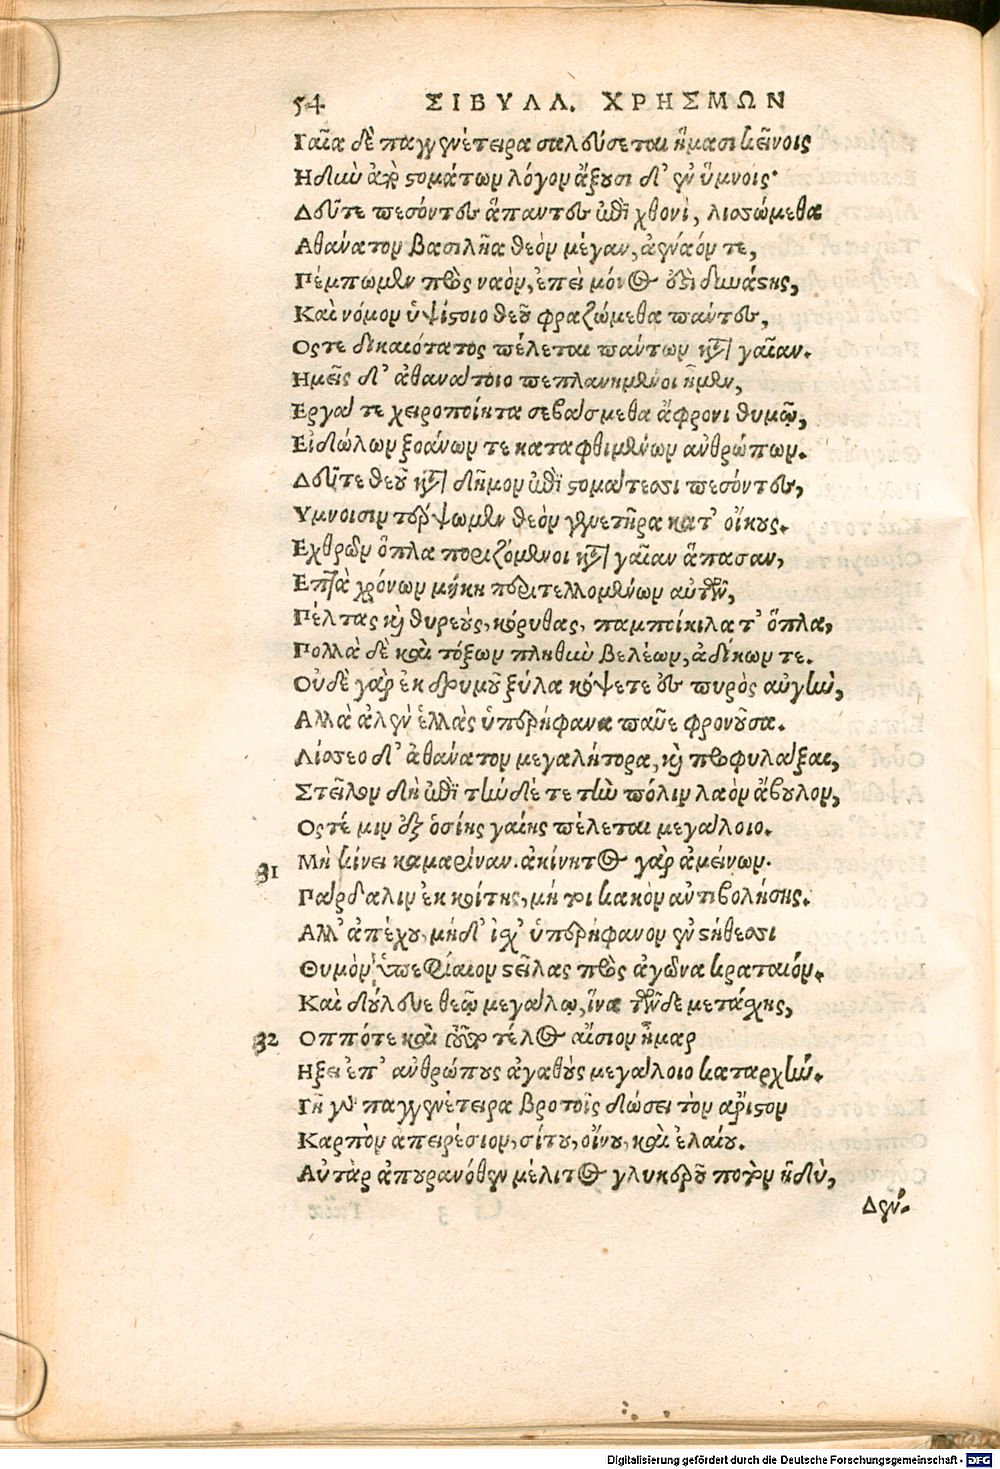 54 ΣΙΒΥΛΛ. ΧΡΗΣΜΩΝ
Γαῖα δὲ παγγενέτειρα σαλεύσεται ἤμασι κείνοις
Ηδὺν ἀπὸ στομάτων λόγον ἄξουσι δ' ἐν ὕμνοις·
Δεῦτε πεσόντες ἅπαντες ἐπὶ χθονὶ, λισσώμεθα
Αθάνατον βασιλῆα θεὸν μέγαν, ἀέναόν τε,
Πέμπωμεν πρὸς ναὸν, ἐπεὶ μόνος ἐστὶ δυνάστης,
Καὶ νόμον ὑψίστοιο θεοῦ φραζώμεθα πάντες,
Οςτε δικαιότατος πέλεται πάντων κατὰ γαῖαν.
Ημεῖς δ' ἀθανάτοιο πεπλανημένοι ἦμεν,
Εργά τε χειροποίητα σεβάσμεθα ἄφρονι θυμῷ,
Εἰδώλων ξοάνων τε καταφθιμένων ἀνθρώπων.
Δεῦτε θεοῦ κατὰ δῆμον ἐπὶ στομάτεσσι πεσόντες,
Υμνοισιν τέρψωμεν θεὸν γενετῆρα κατ' οἴκους.
Εχθρῶν ὅπλα ποριζόμενοι κατὰ γαῖαν ἅπασαν,
Επτὰ χρόνων μήκη περιτελλομένων αὐτῶν,
Πέλτας καὶ θυρεοὺς, κόρυθας, παμποίκιλα τ' ὅπλα,
Πολλὰ δὲ καὶ τόξων πληθὺν βελέων, ἀδίκων τε.
Οὐδὲ γὰρ ἐκ δρυμοῦ ξύλα κόψετε ἐς πυρὸς αὐγὴν,
Αλλὰ ἀλεγὺν ἑλλὰς ὑπερήφανα παῦε φρονοῦσα.
Λίσσεο δ' ἀθάνατον μεγαλήτορα, καὶ προφύλαξαι,
Στεῖλον δὴ ἐπὶ τήνδέ τε τὴν πόλιν λαὸν ἄβουλον,
Οςτέ μιν ἐξ ὁσίης γαίης πέλεται μεγάλοιο.
31 Μὴ κίνει καμαρίναν. ἀκίνητος γὰρ ἀμείνων.
Πάρδαλιν ἐκ κοίτης, μή τοι κακὸν ἀντιβολήσης.
Αλλ' ἀπέχου, μήδ' ἴσχ' ὑπερήφανον ἐν στήθεσσι
Θυμὸν ὑπερφίαλον στείλας πρὸς ἀγῶνα κραταιόν.
Καὶ δούλευε θεῷ μεγάλῳ, ἵνα τῶνδε μετάσχης,
32 Οππότε καὶ τοῦτο τέλος αἴσιον ἦμαρ
Ηξει ἐπ' ἀνθρώπους ἀγαθοὺς μεγάλοιο καταρχὴν.
Γῆ γὰρ παγγενέτειρα βροτοῖς δώσει τὸν ἄριστον
Καρπὸν ἀπειρέσιον, σίτου, οἴνου, καὶ ἐλαίου.
Αὐτὰρ ἀπουρανόθεν μέλιτος γλυκεροῦ ποτὸν ἡδὺ,
Δέν-
Digitalisierung gefördert durch die Deutsche Forschungsgemeinschaft - DFG